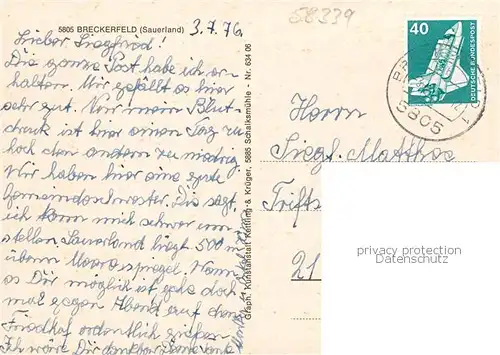 5805 BRECKERFELD (Sauerland)
3.7.76
Lieber Siegfried!
Die ganze Post habe ich er-
halten. Mir gefällt es hier
sehr gut. Nur mein Blut-
druck ist hier einen Tag zu
hoch den andern zu niedrig
Wir haben hier eine gute
Gemeindeschwester. Die sagt,
ich kann mich schwer um-
stellen, Sauerland liegt 500 m
übern Meeresspiegel. Wenn
es Dir möglich ist gehe doch
mal gegen Abend auf den
Friedhof ordentlich gießen
Ich wäre Dir dankbar
Graph. Kunstanstalt Kettling & Krüger, 5885 Schalksmühle - Nr. 634 06
58339
40
DEUTSCHE BUNDESPOST
5805
Herrn
Siegf. Matthes
Trifts
21
privacy protection
Datenschutz